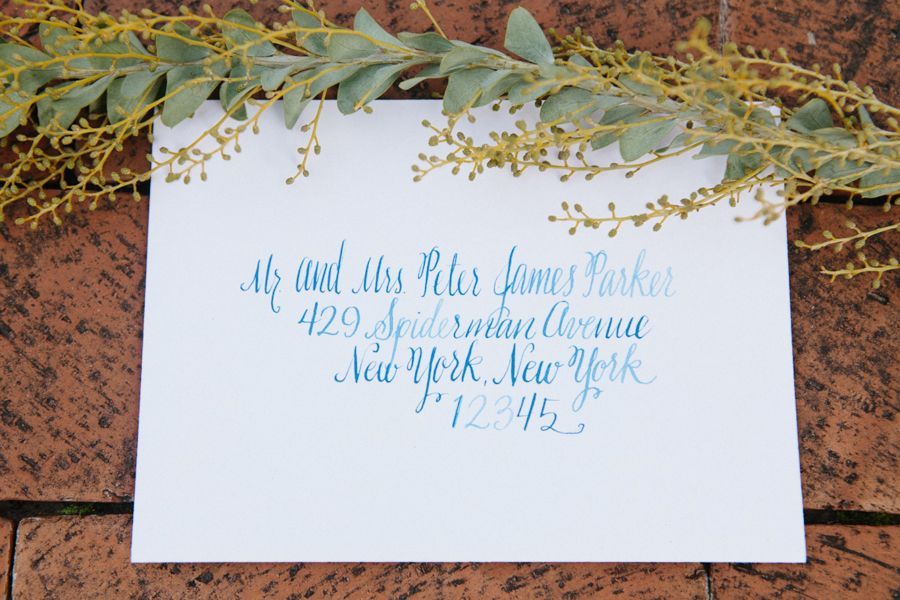 Mr. and Mrs. Peter James Parker
429 Spiderman Avenue
New York, New York
12345